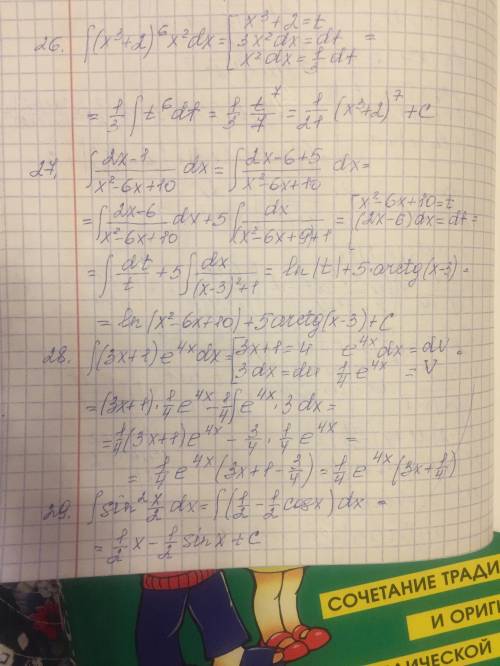 26. ∫(x³+2)⁶x²dx = { x³+2=t
3x²dx=dt =
x²dx=1/3 dt
= 1/3 ∫t⁶dt = 1/3 t⁷/7 = 1/21 (x³+2)⁷+C
27. ∫ (2x-1)/(x²-6x+10) dx = ∫ (2x-6+5)/(x²-6x+10) dx =
= ∫ (2x-6)/(x²-6x+10) dx + 5 ∫ dx/((x²-6x+9)+1) = { x²-6x+10=t
(2x-6)dx=dt =
= ∫ dt/t + 5 ∫ dx/((x-3)²+1) = ln|t|+5·arctg(x-3) =
= ln|x²-6x+10|+5arctg(x-3)+C
28. ∫(3x+1)e⁴ˣdx = [ 3x+1=u e⁴ˣdx=dv =
3dx=du 1/4 e⁴ˣ = v
= (3x+1)·1/4 e⁴ˣ - 1/4 ∫e⁴ˣ·3dx =
= 1/4 (3x+1)e⁴ˣ - 3/4 · 1/4 e⁴ˣ =
= 1/4 e⁴ˣ(3x+1-3/4) = 1/4 e⁴ˣ(3x+1/4)
29. ∫sin² x/2 dx = ∫(1/2 - 1/2 cosx)dx =
= 1/2 x - 1/2 sinx + C
СОЧЕТАНИЕ ТРАДИ
И ОРИГИ
ИЧЕСКОЙ